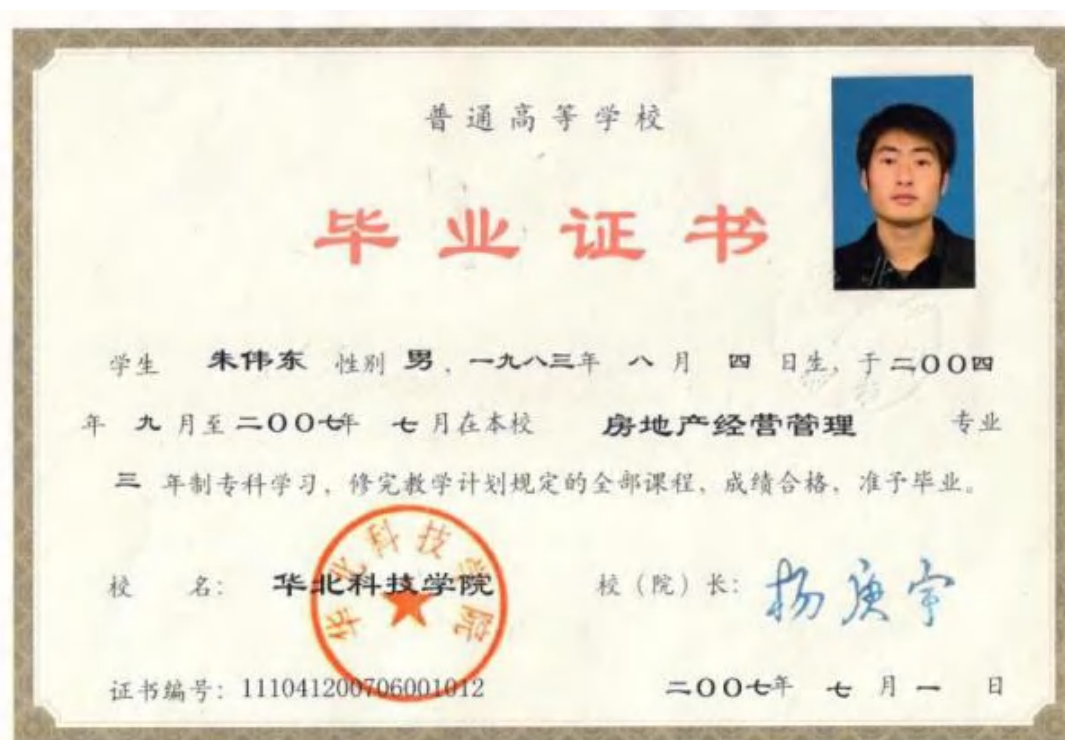 普通高等学校
毕业证书
学生 朱伟东 性别 男，一九八三年 八 月 四 日生，于二〇〇四
年 九 月至二〇〇七年 七 月在本校 房地产经营管理 专业
三 年制专科学习，修完教学计划规定的全部课程，成绩合格，准予毕业。
华北科技学院
校 名： 华北科技学院 校（院）长： 杨庚宇
证书编号：111041200706001012 二〇〇七年 七 月 一 日